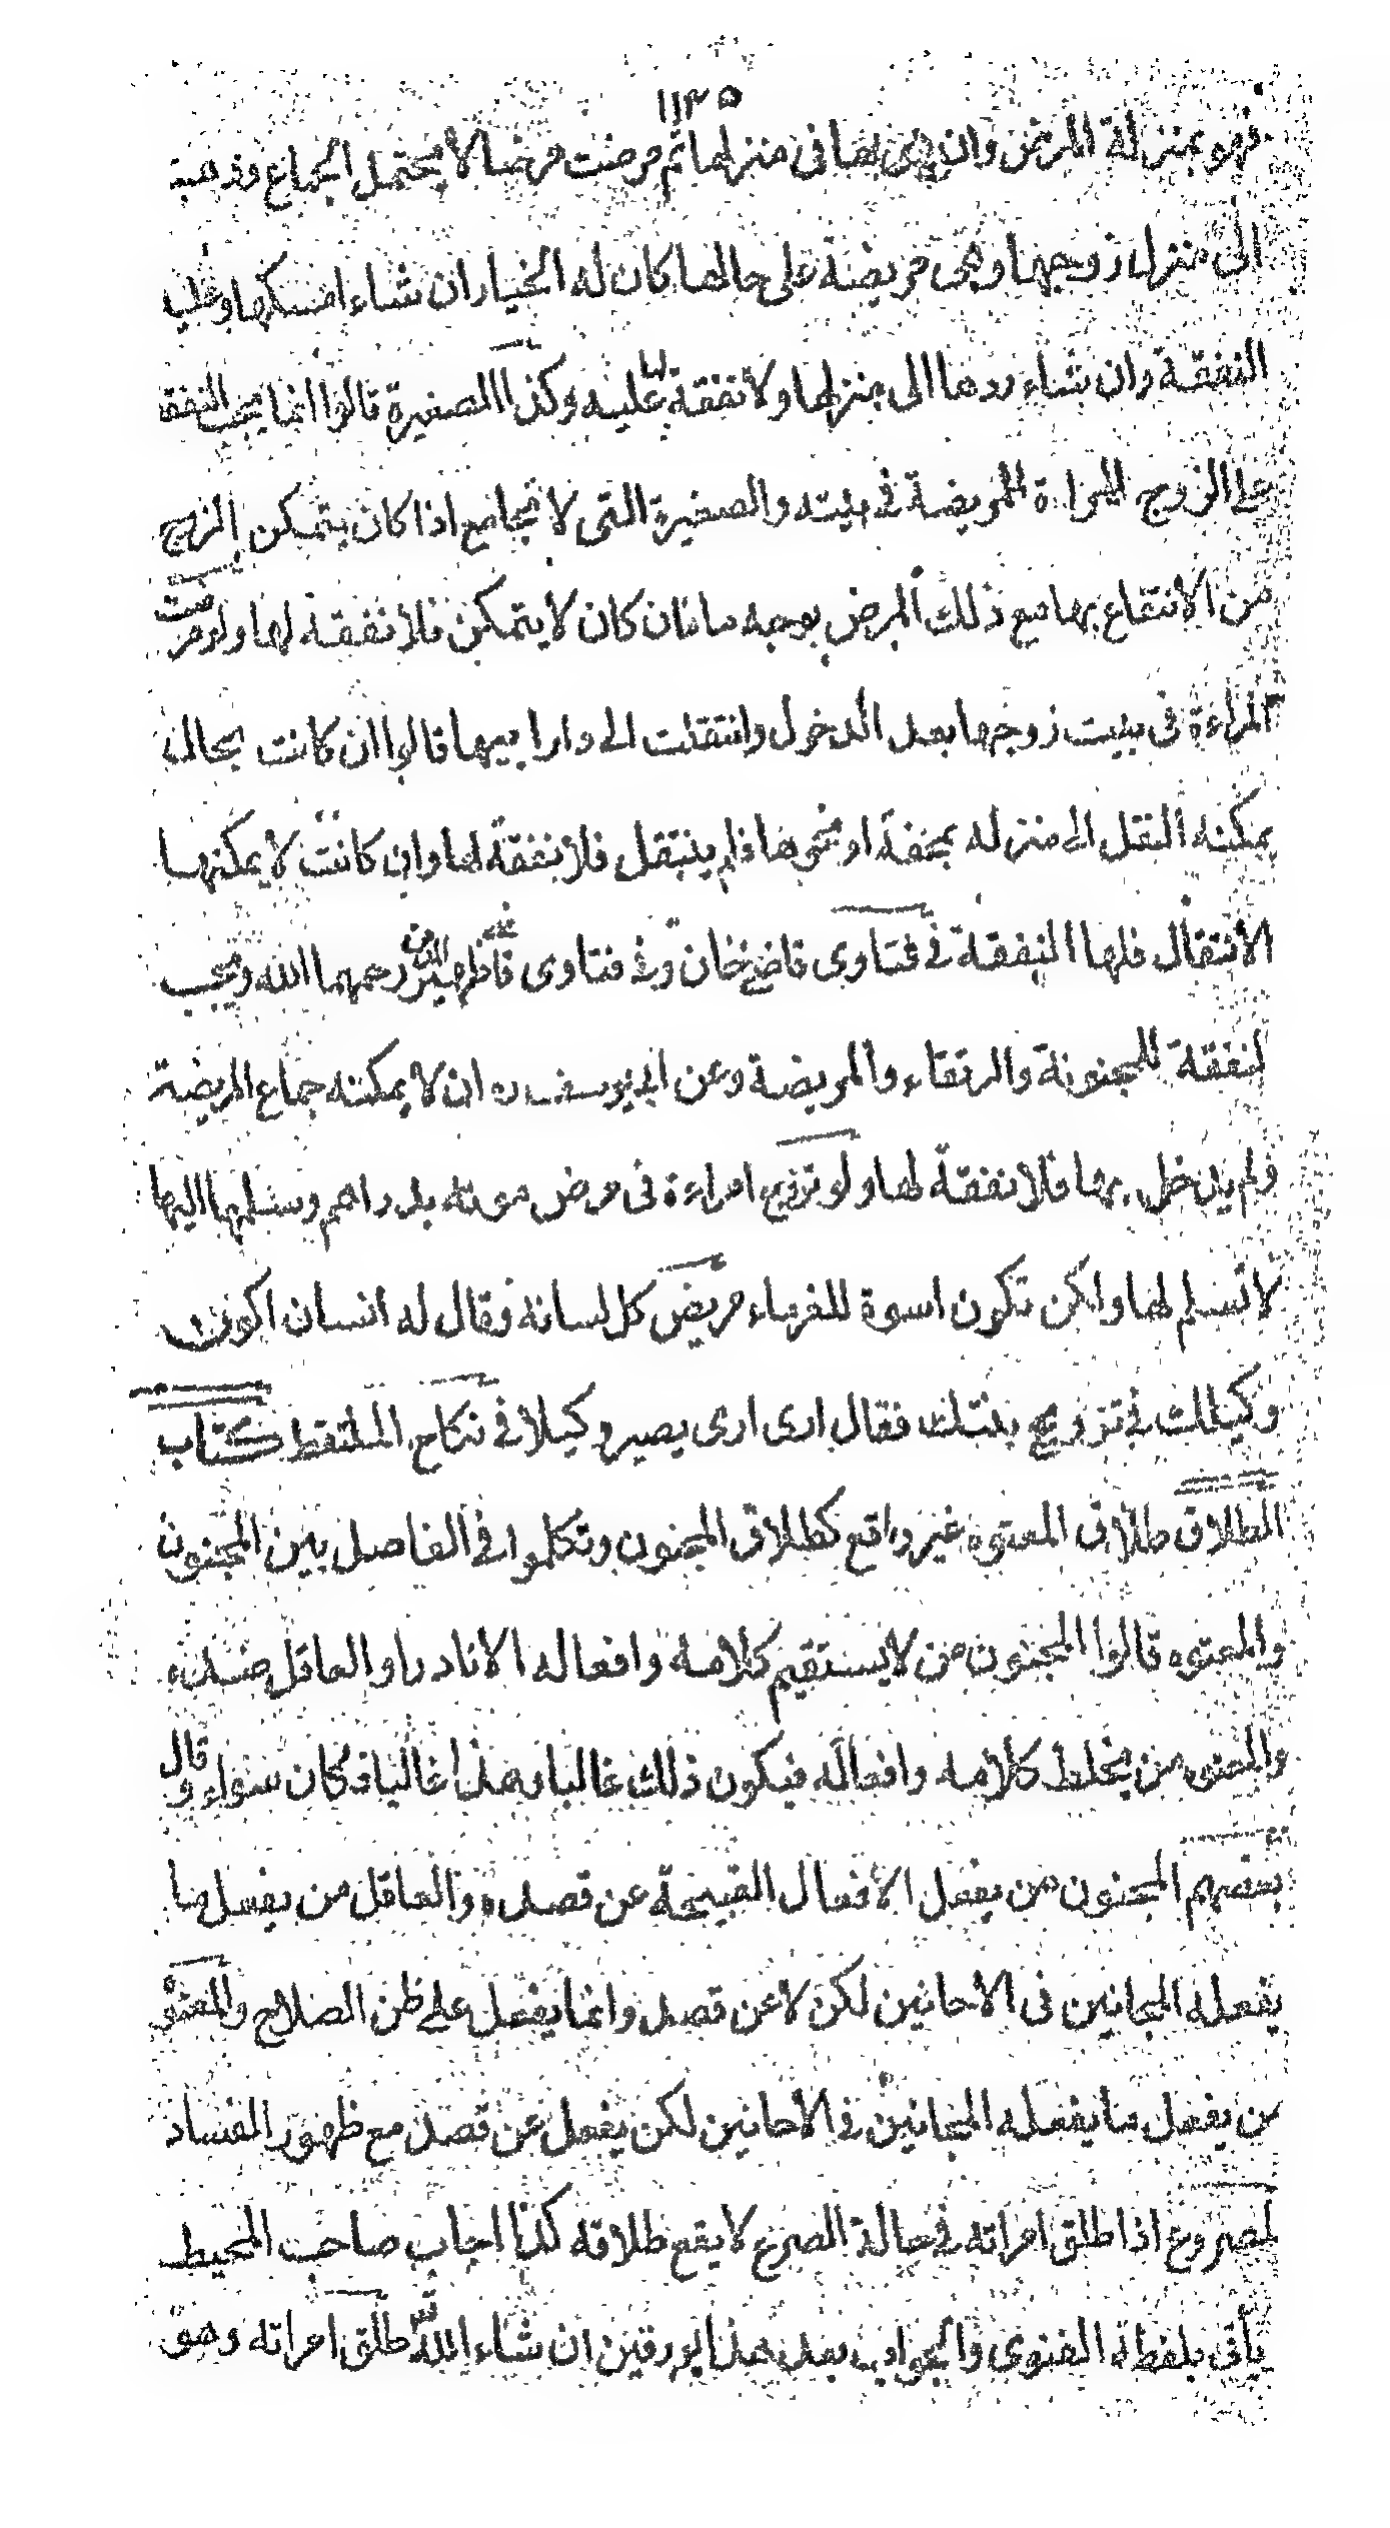 ١١٣٥
فهو بمنزلة المرض وان بنى بها فى منزلها ثم مرضت مرضا لا يحتمل الجماع وذهبت
الى منزل زوجها وهى مريضة على حالها كان له الخيار ان شاء امسكها وعليه
النفقة وان شاء ردها الى منزلها ولا نفقة لها عليه وكذا الصغيرة قالوا انما يجب النفقة
على الزوج للمراة المريضة فى بيته والصغيرة التى لا تجامع اذا كان يتمكن الزوج
من الانتفاع بها مع ذلك المرض بوجه ما فان كان لا يتمكن فلا نفقة لها ولو مرضت
المراءة فى بيت زوجها بعد الدخول وانتقلت الى دار ابيها قالوا ان كانت بحال
يمكنه النقل الى منزله بمحفة او نحوها فلم ينتقل فلا نفقة لها وان كانت لا يمكنها
الانتقال فلها النفقة فى فتاوى قاضيخان وفى فتاوى ظهير الدين رحمهما الله ويجب
لنفقة للمجنونة والرتقاء والمريضة وعن ابى يوسف ره ان لا يمكنه جماع المريضة
ولم يدخل بها فلا نفقة لها ولو تزوج امراءة فى مرض موته بدراهم وسلمها اليها
لا تسلم لها ولكن تكون اسوة للغرماء مريض كل لسانه وقال له انسان اكون
وكيلك فى تزويج بنتك فقال ارى ارى يصير وكيلا فى نكاح الملتقط كتاب
الطلاق طلاق المعتوه غير واقع كطلاق المجنون وتكلموا فى الفاصل بين المجنون
والمعتوه قالوا المجنون من لا يستقيم كلامه وافعاله الا نادرا والعاقل ضده
والمعتوه من يخلط كلامه وافعاله فيكون ذلك غالبا وهذا غالبا فكان سواء وقال
بعضهم المجنون من يفعل الافعال القبيحة عن قصده والعاقل من يفعل ما
يفعله المجانين فى الاحانين لكن لا عن قصد وانما يفعل على ظن الصلاح والمعتوه
من يفعل ما يفعله المجانين فى الاحانين لكن يفعل عن قصد مع ظهور الفساد
لمصروع اذا طلق امراته فى حالة الصرع لا يقع طلاقه كذا اجاب صاحب المحيط
يأتى بلفظه الفتوى والجواب بعد هذا بورقين ان شاء الله طلق امراته وهو